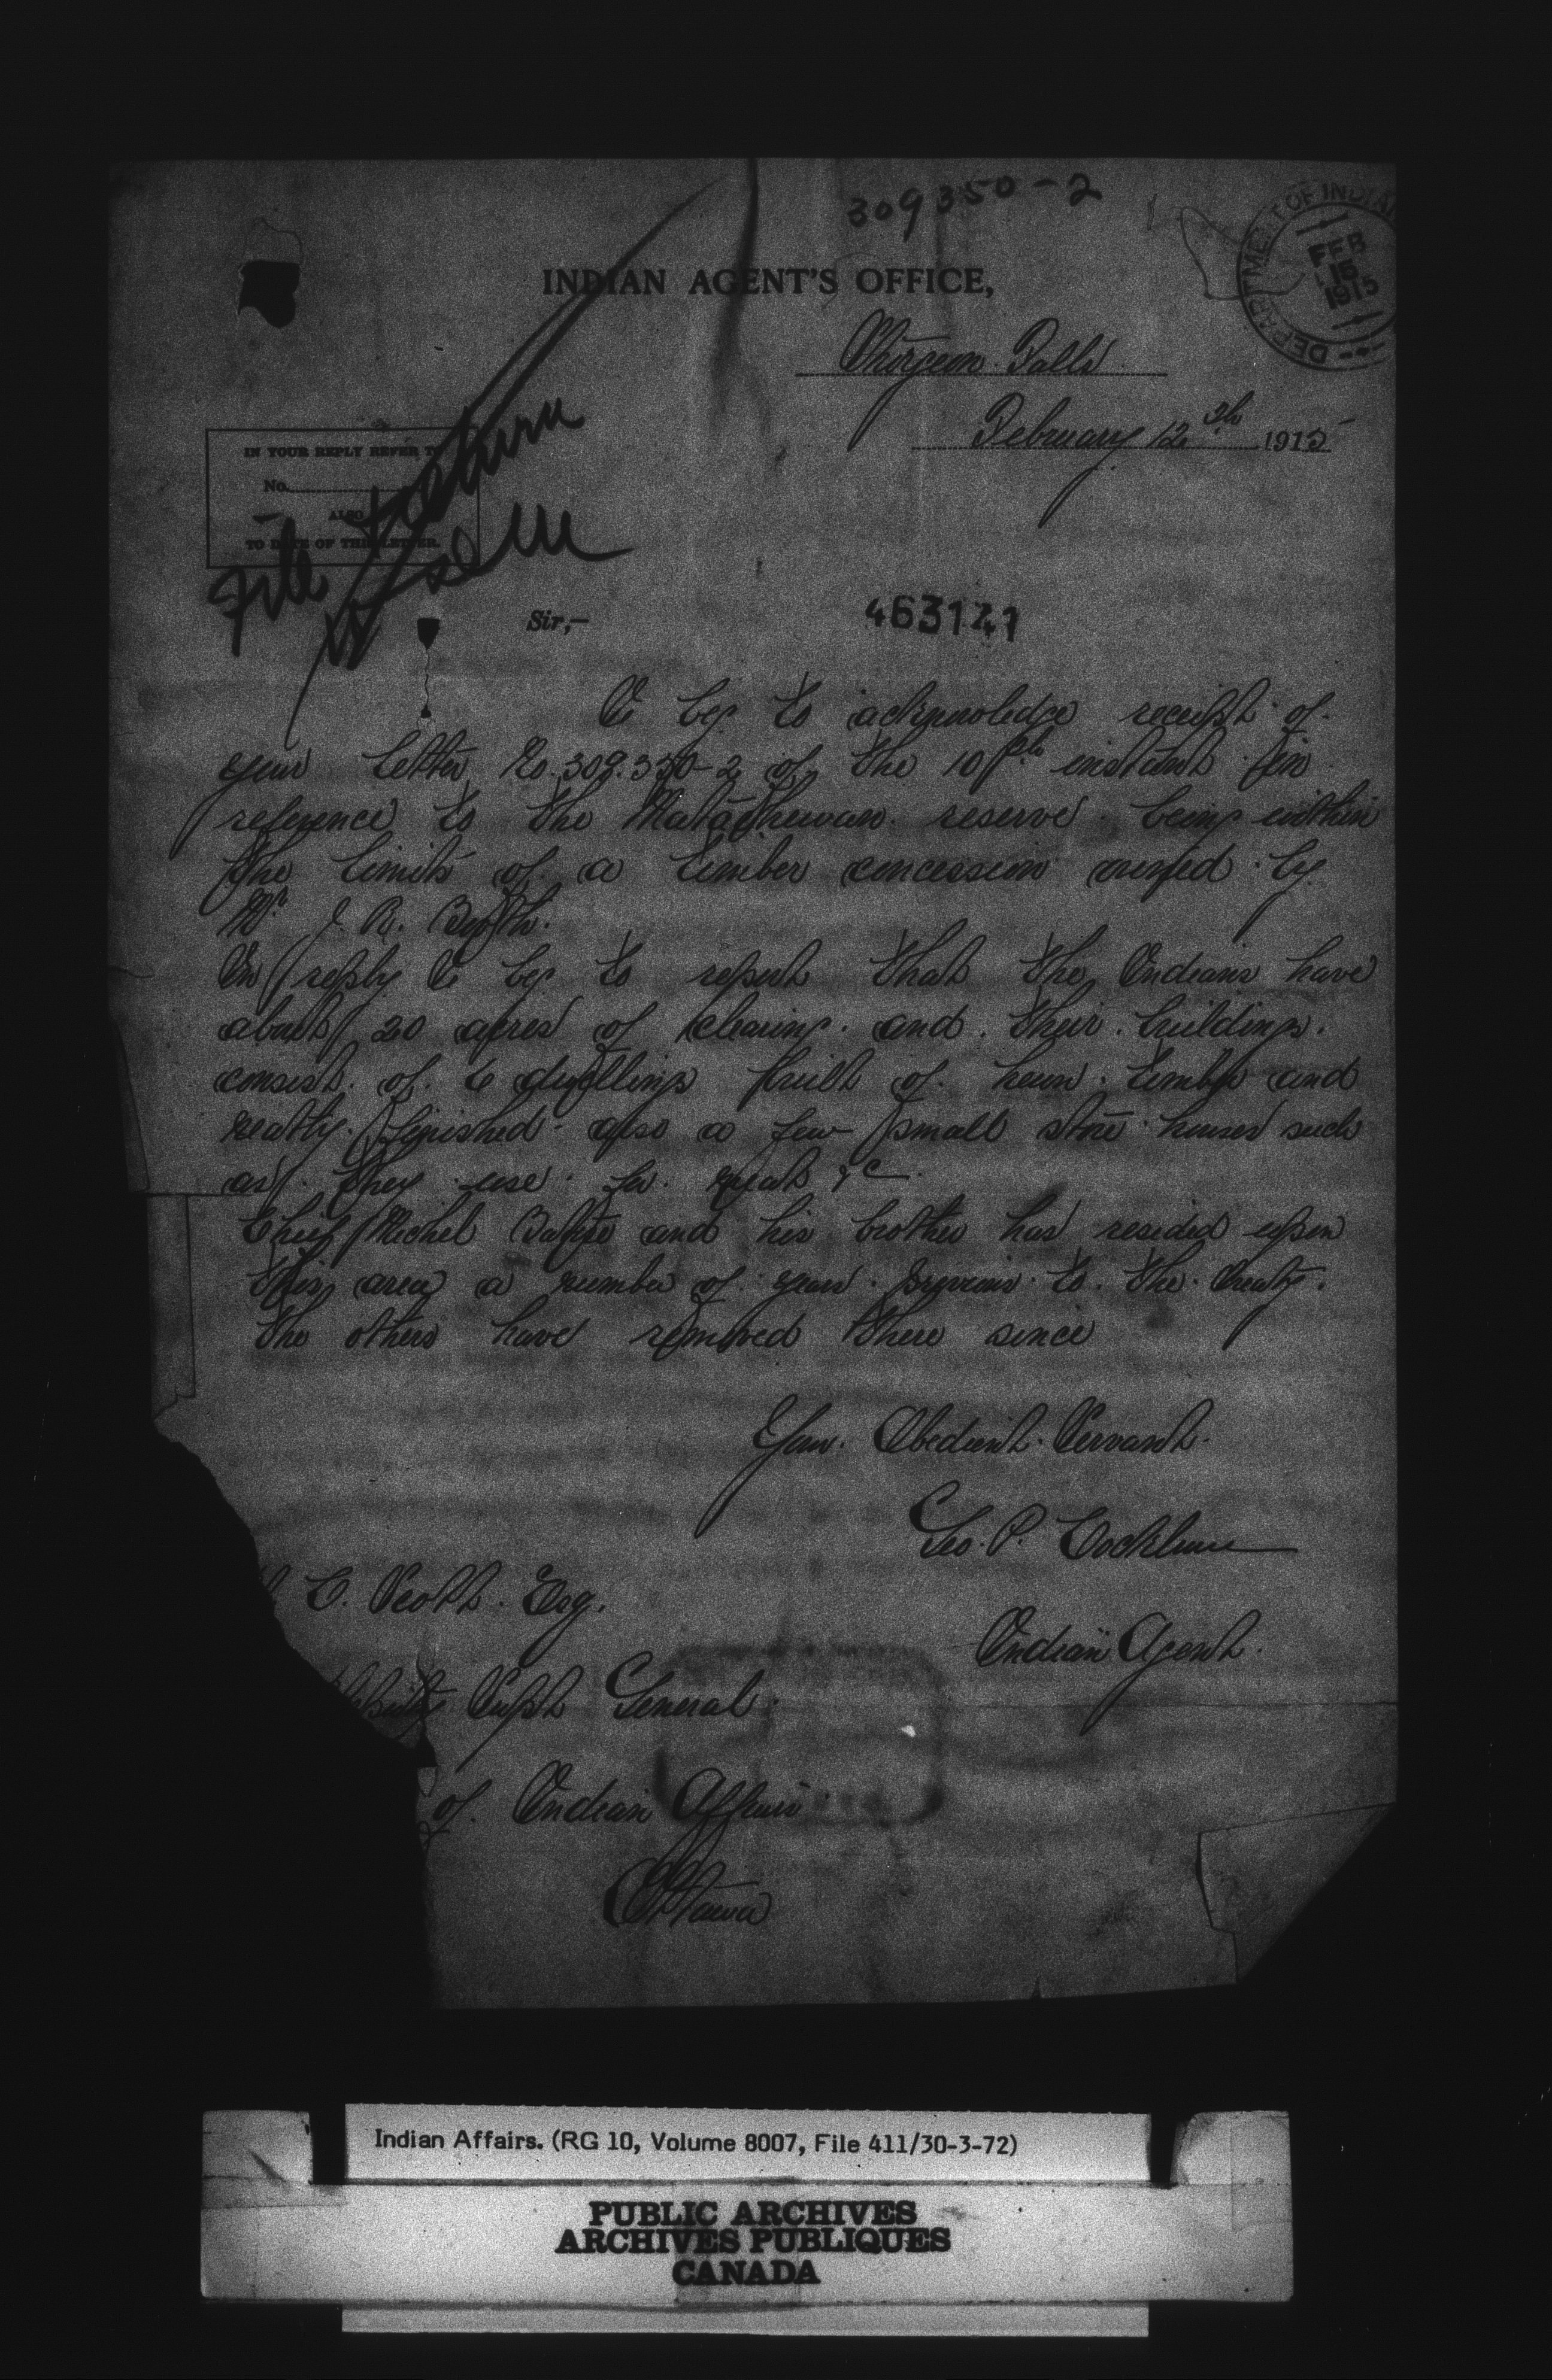 309350-2
DEPARTMENT OF INDIAN
FEB
15
1915
INDIAN AGENT'S OFFICE,
Sturgeon Falls
February 12th 1915
IN YOUR REPLY REFER TO
No.
ALSO
TO DATE OF THIS LETTER.
File
Sir,-
463141
I beg to acknowledge receipt of
your letter No. 309.350-2 of the 10th instant in
reference to the Matatchewan reserve being within
the limits of a timber concession owned by
Mr J. R. Booth.
In reply I beg to report that the Indians have
about 20 acres of clearing and their buildings
consist of 6 dwellings built of hewn timber and
neatly finished also a few small store houses such
as they use for meat &c
Chief Michel Batise and his brother has resided upon
this area a number of years previous to the treaty.
the others have removed there since
Your Obedient Servant
Geo. P. Cockburn
Indian Agent.
C. Scott. Esq.
Deputy Supt General
of Indian Affairs
Ottawa
Indian Affairs. (RG 10, Volume 8007, File 411/30-3-72)
PUBLIC ARCHIVES
ARCHIVES PUBLIQUES
CANADA